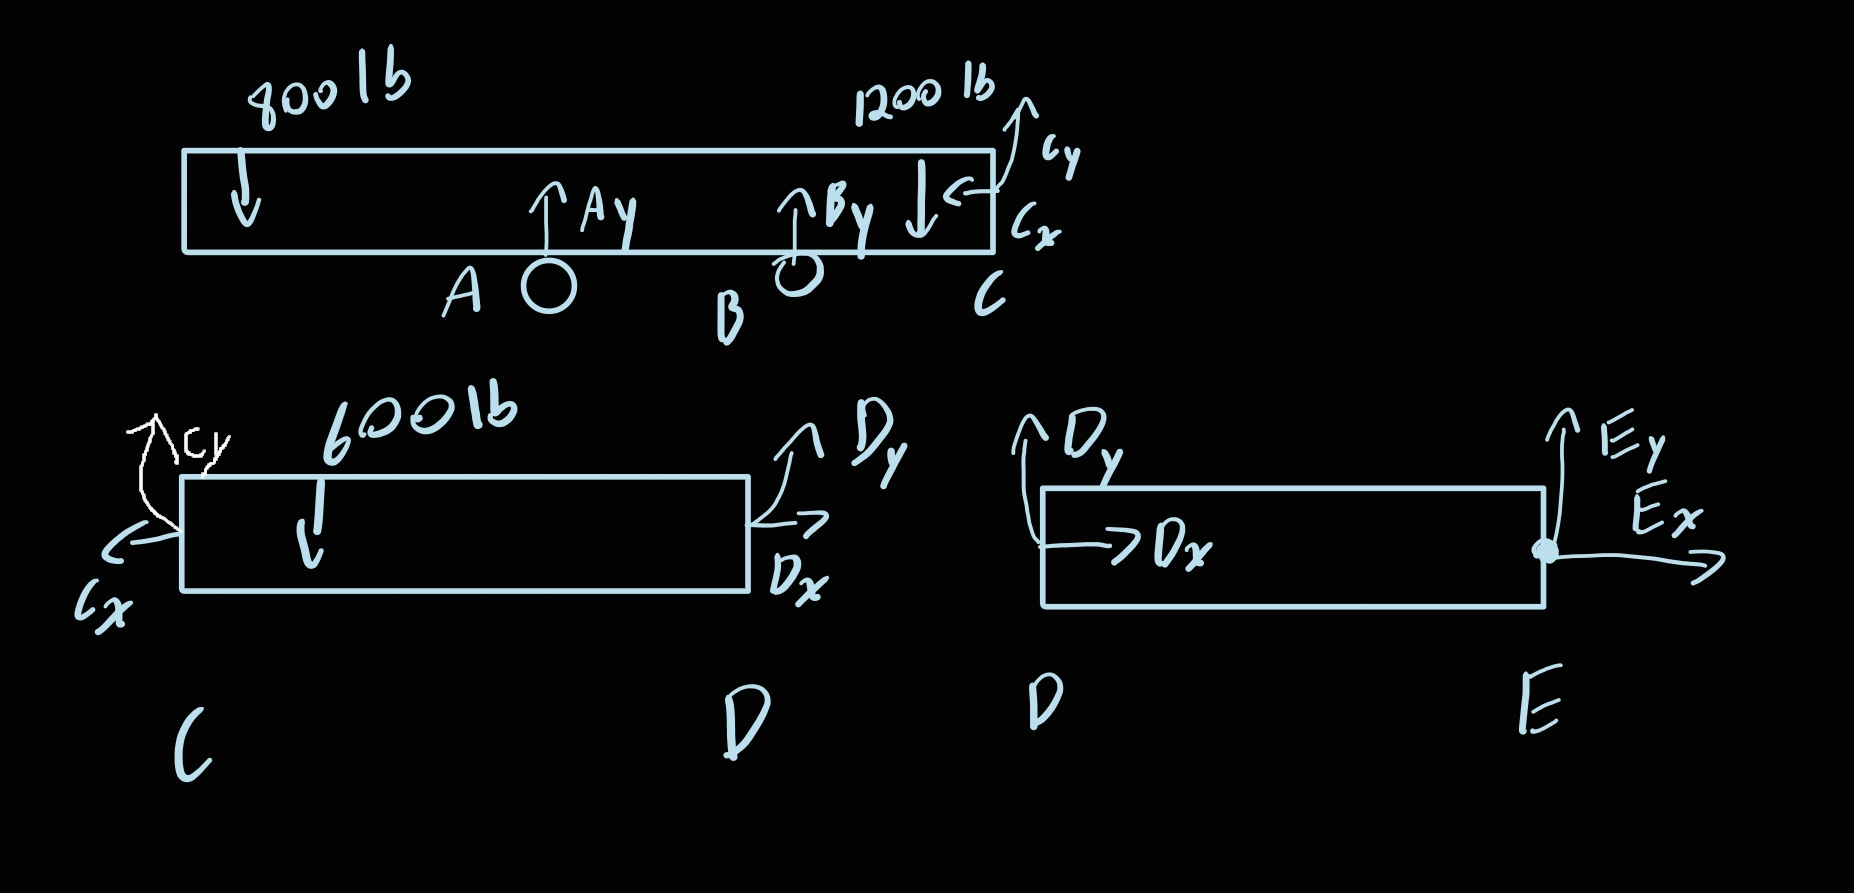 800 lb
1200 lb
Cy
Ay
By
Cx
A
B
C
600 lb
Cy
Dy
Cx
Dx
Dy
Dx
Ey
Ex
C
D
D
E